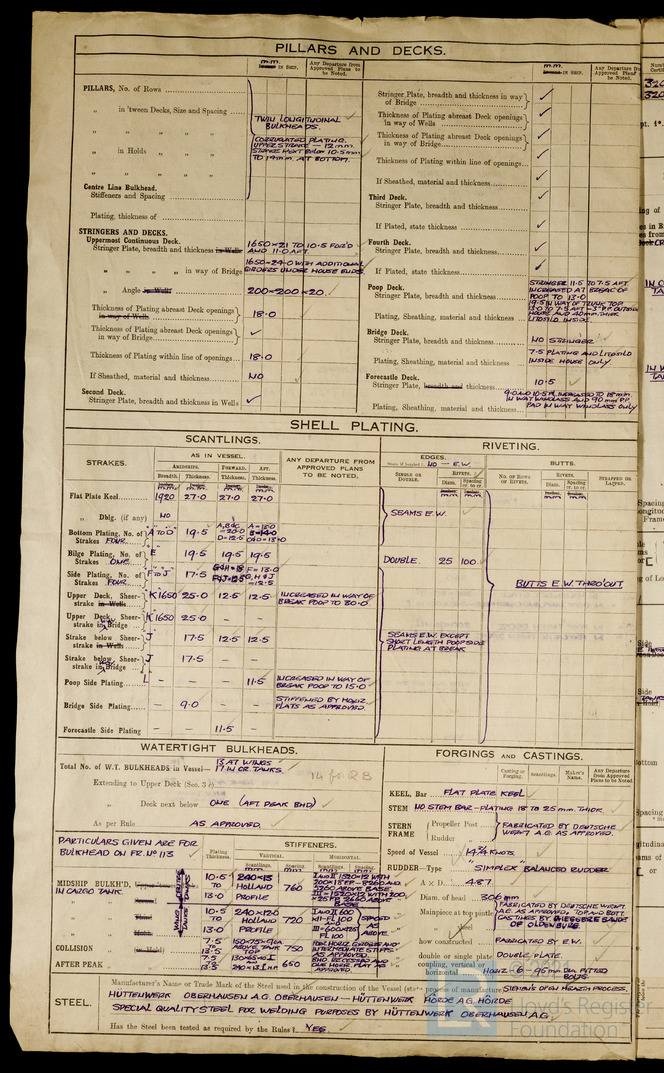 PILLARS AND DECKS.
m.m.
Inches IN SHIP.
Any Departure from Approved Plans to be Noted.
PILLARS, No. of Rows
„ in 'tween Decks, Size and Spacing
„ „ „
„ in Holds „ „
„ „ „
TWIN LONGITUDINAL
BULKHEADS.
CORRUGATED PLATING.
UPPER STRAKE – 12 mm
STRAKE NEXT BELOW 10.5 mm
TO 19 mm AT BOTTOM.
Centre Line Bulkhead.
Stiffeners and Spacing
Plating, thickness of
STRINGERS AND DECKS.
Uppermost Continuous Deck.
Stringer Plate, breadth and thickness in Wells 1650 × 21 TO 10.5 FOR'D AND 11.0 AFT.
„ „ „ „ in way of Bridge 1650 × 24.0 WITH ADDITIONAL GIRDERS UNDER HOUSE ENDS.
„ Angle in Wells 200 × 200 × 20.
Thickness of Plating abreast Deck openings in way of Wells 18.0
Thickness of Plating abreast Deck openings in way of Bridge ✓
Thickness of Plating within line of openings 18.0
If Sheathed, material and thickness NO
Second Deck.
Stringer Plate, breadth and thickness in Wells ✓
m.m.
Inches IN SHIP.
Any Departure from Approved Plans to be Noted.
Stringer Plate, breadth and thickness in way of Bridge ✓
Thickness of Plating abreast Deck openings in way of Wells ✓
Thickness of Plating abreast Deck openings in way of Bridge ✓
Thickness of Plating within line of openings ✓
If Sheathed, material and thickness ✓
Third Deck.
Stringer Plate, breadth and thickness ✓
If Plated, state thickness ✓
Fourth Deck.
Stringer Plate, breadth and thickness ✓
If Plated, state thickness ✓
Poop Deck.
Stringer Plate, breadth and thickness
STRINGER 11.5 TO 7.5 AFT
INCREASED AT BREAK OF
POOP TO 13.0
Plating, Sheathing, material and thickness
19.5 IN WAY OF TRUNK TOP
LITOSILO INSIDE.
Bridge Deck.
Stringer Plate, breadth and thickness NO STRINGER
Plating, Sheathing, material and thickness 7.5 PLATING AND LITOSILO INSIDE HOUSE ONLY.
Forecastle Deck.
Stringer Plate, breadth and thickness 10.5
Plating, Sheathing, material and thickness
9.0 AND 10.5 PL. INCREASED TO 18 mm.
IN WAY WINDLASS AND 90 mm P.P.
PAD IN WAY WINDLASS ONLY
SHELL PLATING.
SCANTLINGS.
RIVETING.
STRAKES.
AS IN VESSEL.
AMIDSHIPS. FORWARD. AFT.
Breadth. Thickness. Thickness. Thickness.
ANY DEPARTURE FROM APPROVED PLANS TO BE NOTED.
EDGES.
NO – E.W.
SINGLE OR DOUBLE.
RIVETS.
Diam. Spacing cr. to cr.
BUTTS.
NO. OF ROWS OF RIVETS.
RIVETS.
Diam. Spacing cr. to cr.
STRAPPED OR LAPPED.
Flat Plate Keel 1920 27.0 27.0 27.0
„ Dblg. (if any) NO
SEAMS E.W.
Bottom Plating, No. of Strakes FOUR. "A" TO "D" 19.5
Bilge Plating, No. of Strakes ONE. "E" 19.5 19.5 19.5 DOUBLE. 25 100
Side Plating, No. of Strakes FOUR "F" TO "J" 17.5
BUTTS E.W. THRO'OUT
Upper Deck, Sheer-strake in Wells "K" 1650 25.0 12.5 12.5 INCREASED IN WAY OF BREAK POOP TO 30.0
Upper Deck, Sheer-strake in Bridge "K" 1650 25.0 – –
Strake below Sheer-strake in Wells "J" 17.5 12.5 12.5
SEAMS E.W. EXCEPT
SHORT LENGTH POOP SIDE
PLATING AT BREAK
Strake below Sheer-strake in Bridge "J" 17.5 – –
Poop Side Plating "L" – – 11.5 INCREASED IN WAY OF BREAK POOP TO 15.0
Bridge Side Plating – 9.0 – – STIFFENED BY HORIZ. FLATS AS APPROVED.
Forecastle Side Plating – – 11.5 –
WATERTIGHT BULKHEADS.
Total No. of W.T. BULKHEADS in Vessel— 13 AT WINGS 17 IN CR. TANKS.
14 for R B
Extending to Upper Deck (Sec. 3 )
„ Deck next below ONE (AFT PEAK BHD)
As per Rule AS APPROVED.
PARTICULARS GIVEN ARE FOR
BULKHEAD ON FR. Nº 113
Plating Thickness.
STIFFENERS.
VERTICAL. HORIZONTAL.
Scantlings. Spacing. Scantlings. Spacing.
MIDSHIP BULK'D, 10.5 TO 13.0 240×13 HOLLAND PROFILE 760
IN CARGO TANK.
CENTRE TANKS
WING TANKS
10.5 TO 13.0 240×120 HOLLAND PROFILE 720 SPACED AS ABOVE.
COLLISION 7.5 TO 13.5 750
AFTER PEAK 7.5 TO 13.5 650
FORGINGS AND CASTINGS.
Casting or Forging. Scantlings. Maker's Name. Any Departure from Approved Plans to be Noted.
KEEL, Bar FLAT PLATE KEEL
STEM NO STEM BAR – PLATING 18 TO 25 mm. THICK.
STERN FRAME Propeller Post
Rudder „
FABRICATED BY DEUTSCHE
WERFT A.G. AS APPROVED.
Speed of Vessel 14¾ KNOTS.
RUDDER—Type "SIMPLEX" BALANCED RUDDER
A × D 487
Diam. of head 306 mm
Mainpiece at top pintle
„ heel
FABRICATED BY DEUTSCHE WERFT.
A.G. AS APPROVED. TOP AND BOTT.
OF OLDENBURG.
how constructed FABRICATED BY E.W.
double or single plate DOUBLE PLATE.
coupling, vertical or horizontal HORIZ – 6 – 96 mm DIA. FITTED BOLTS.
STEEL.
Manufacturer's Name or Trade Mark of the Steel used in the construction of the Vessel (state process of manufacture) SIEMEN'S OPEN HEARTH PROCESS.
HÜTTENWERK OBERHAUSEN A.G. OBERHAUSEN – HÜTTENWERK HÖRDE A.G. HÖRDE
SPECIAL QUALITY STEEL FOR WELDING PURPOSES BY HÜTTENWERK OBERHAUSEN A.G.
Has the Steel been tested as required by the Rules? YES.
Lloyd's Register
Foundation